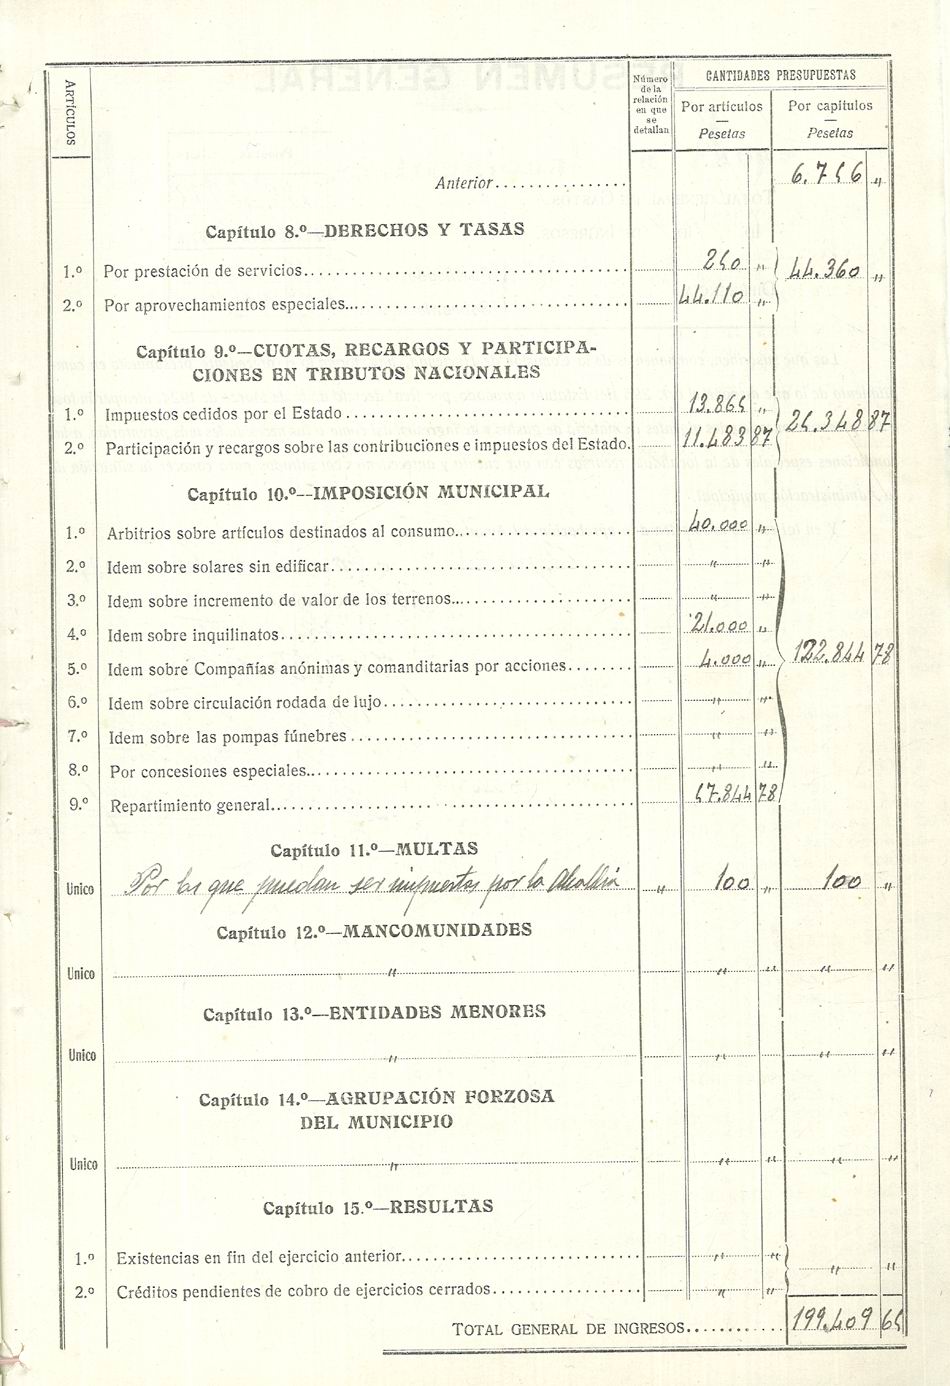 ARTÍCULOS
Número de la relación en que se detallan
CANTIDADES PRESUPUESTAS
Por artículos — Pesetas
Por capítulos — Pesetas
Anterior................ 6.756 „
Capítulo 8.º—DERECHOS Y TASAS
1.º Por prestación de servicios........ 250 „ 44.360 „
2.º Por aprovechamientos especiales........ 44.110 „
Capítulo 9.º—CUOTAS, RECARGOS Y PARTICIPA-
CIONES EN TRIBUTOS NACIONALES
1.º Impuestos cedidos por el Estado........ 13.865 „ 25.348 87
2.º Participación y recargos sobre las contribuciones e impuestos del Estado. 11.483 87
Capítulo 10.º—IMPOSICIÓN MUNICIPAL
1.º Arbitrios sobre artículos destinados al consumo........ 40.000 „
2.º Idem sobre solares sin edificar........ „ „
3.º Idem sobre incremento de valor de los terrenos........ „ „
4.º Idem sobre inquilinatos........ 21.000 „
5.º Idem sobre Compañías anónimas y comanditarias por acciones........ 4.000 „ 122.844 78
6.º Idem sobre circulación rodada de lujo........ „ „
7.º Idem sobre las pompas fúnebres........ „ „
8.º Por concesiones especiales........ „ „
9.º Repartimiento general........ 57.844 78
Capítulo 11.º—MULTAS
Unico Por las que puedan ser impuestas por la Alcaldía „ 100 „ 100 „
Capítulo 12.º—MANCOMUNIDADES
Unico „ „ „ „ „
Capítulo 13.º—ENTIDADES MENORES
Unico „ „ „ „ „
Capítulo 14.º—AGRUPACIÓN FORZOSA
DEL MUNICIPIO
Unico „ „ „ „ „
Capítulo 15.º—RESULTAS
1.º Existencias en fin del ejercicio anterior........ „ „ „ „
2.º Créditos pendientes de cobro de ejercicios cerrados........ „ „
TOTAL GENERAL DE INGRESOS........ 199.409 65